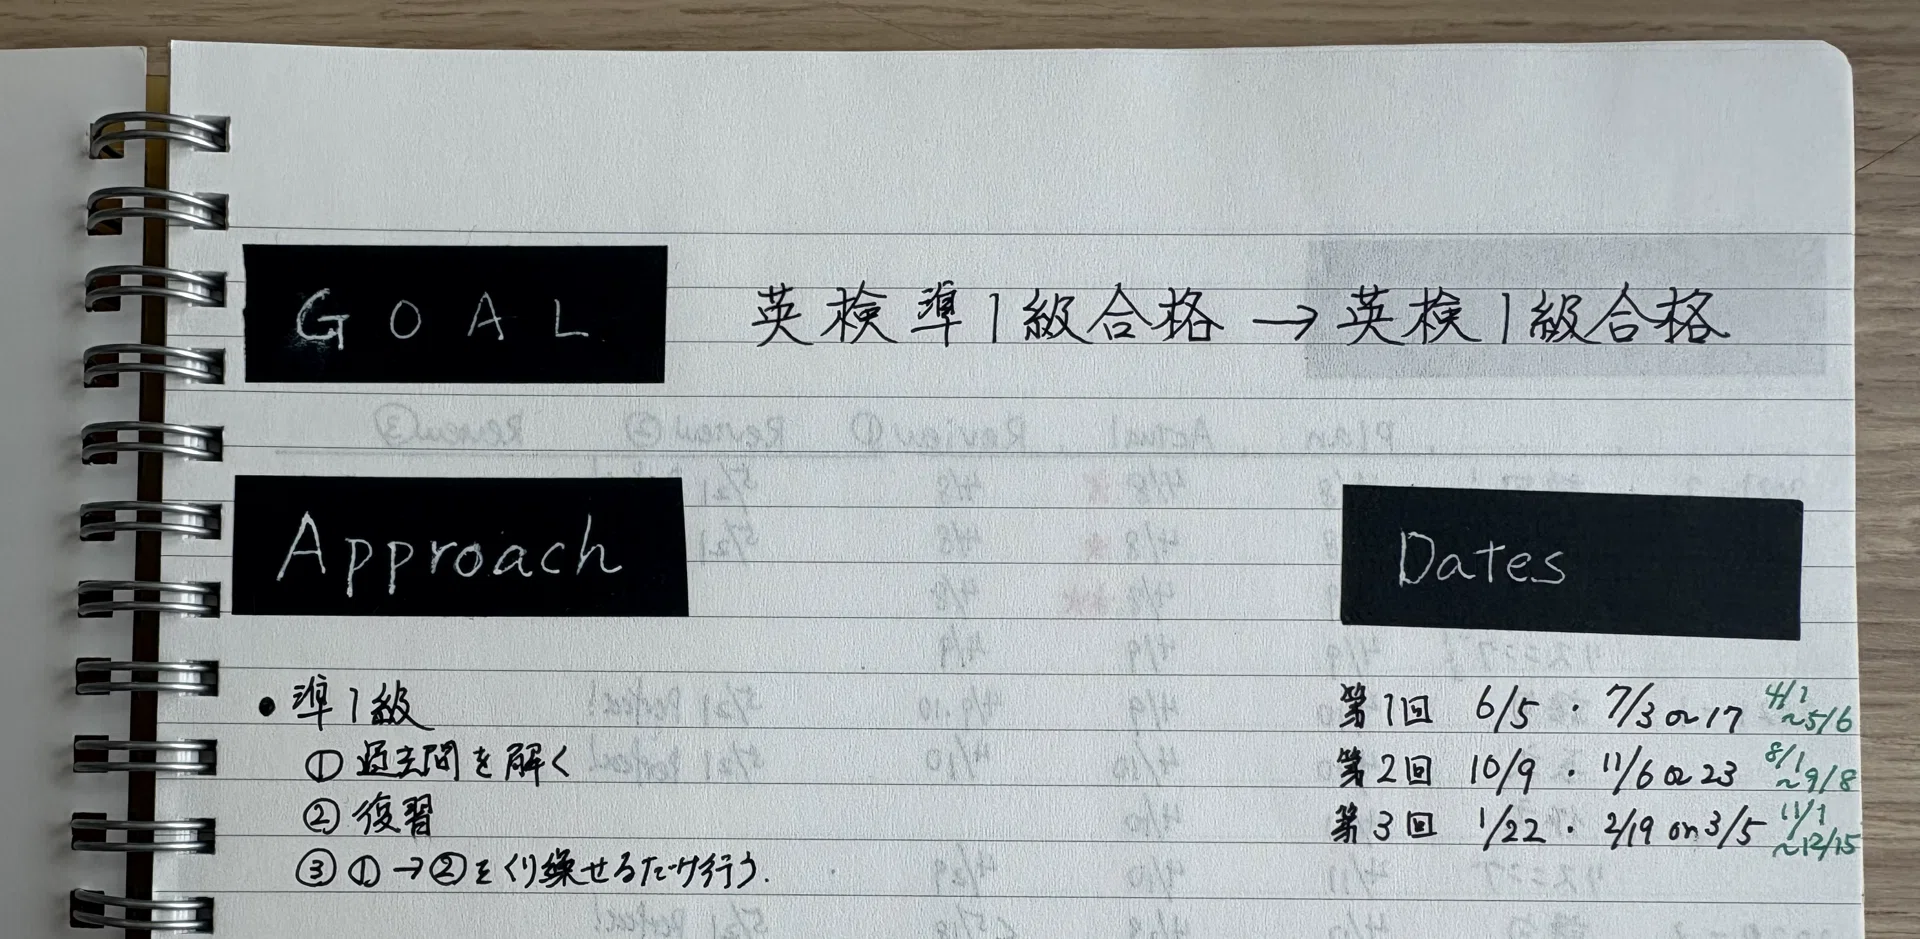 GOAL 英検準1級合格 → 英検1級合格
Approach
• 準1級
① 過去問を解く
② 復習
③ ①→②をくり繰せるだけ行う.
Dates
第1回 6/5 ・ 7/3 or 17 4/1 ~5/6
第2回 10/9 ・ 11/6 or 23 8/1 ~9/8
第3回 1/22 ・ 2/19 or 3/5 11/1 ~12/15